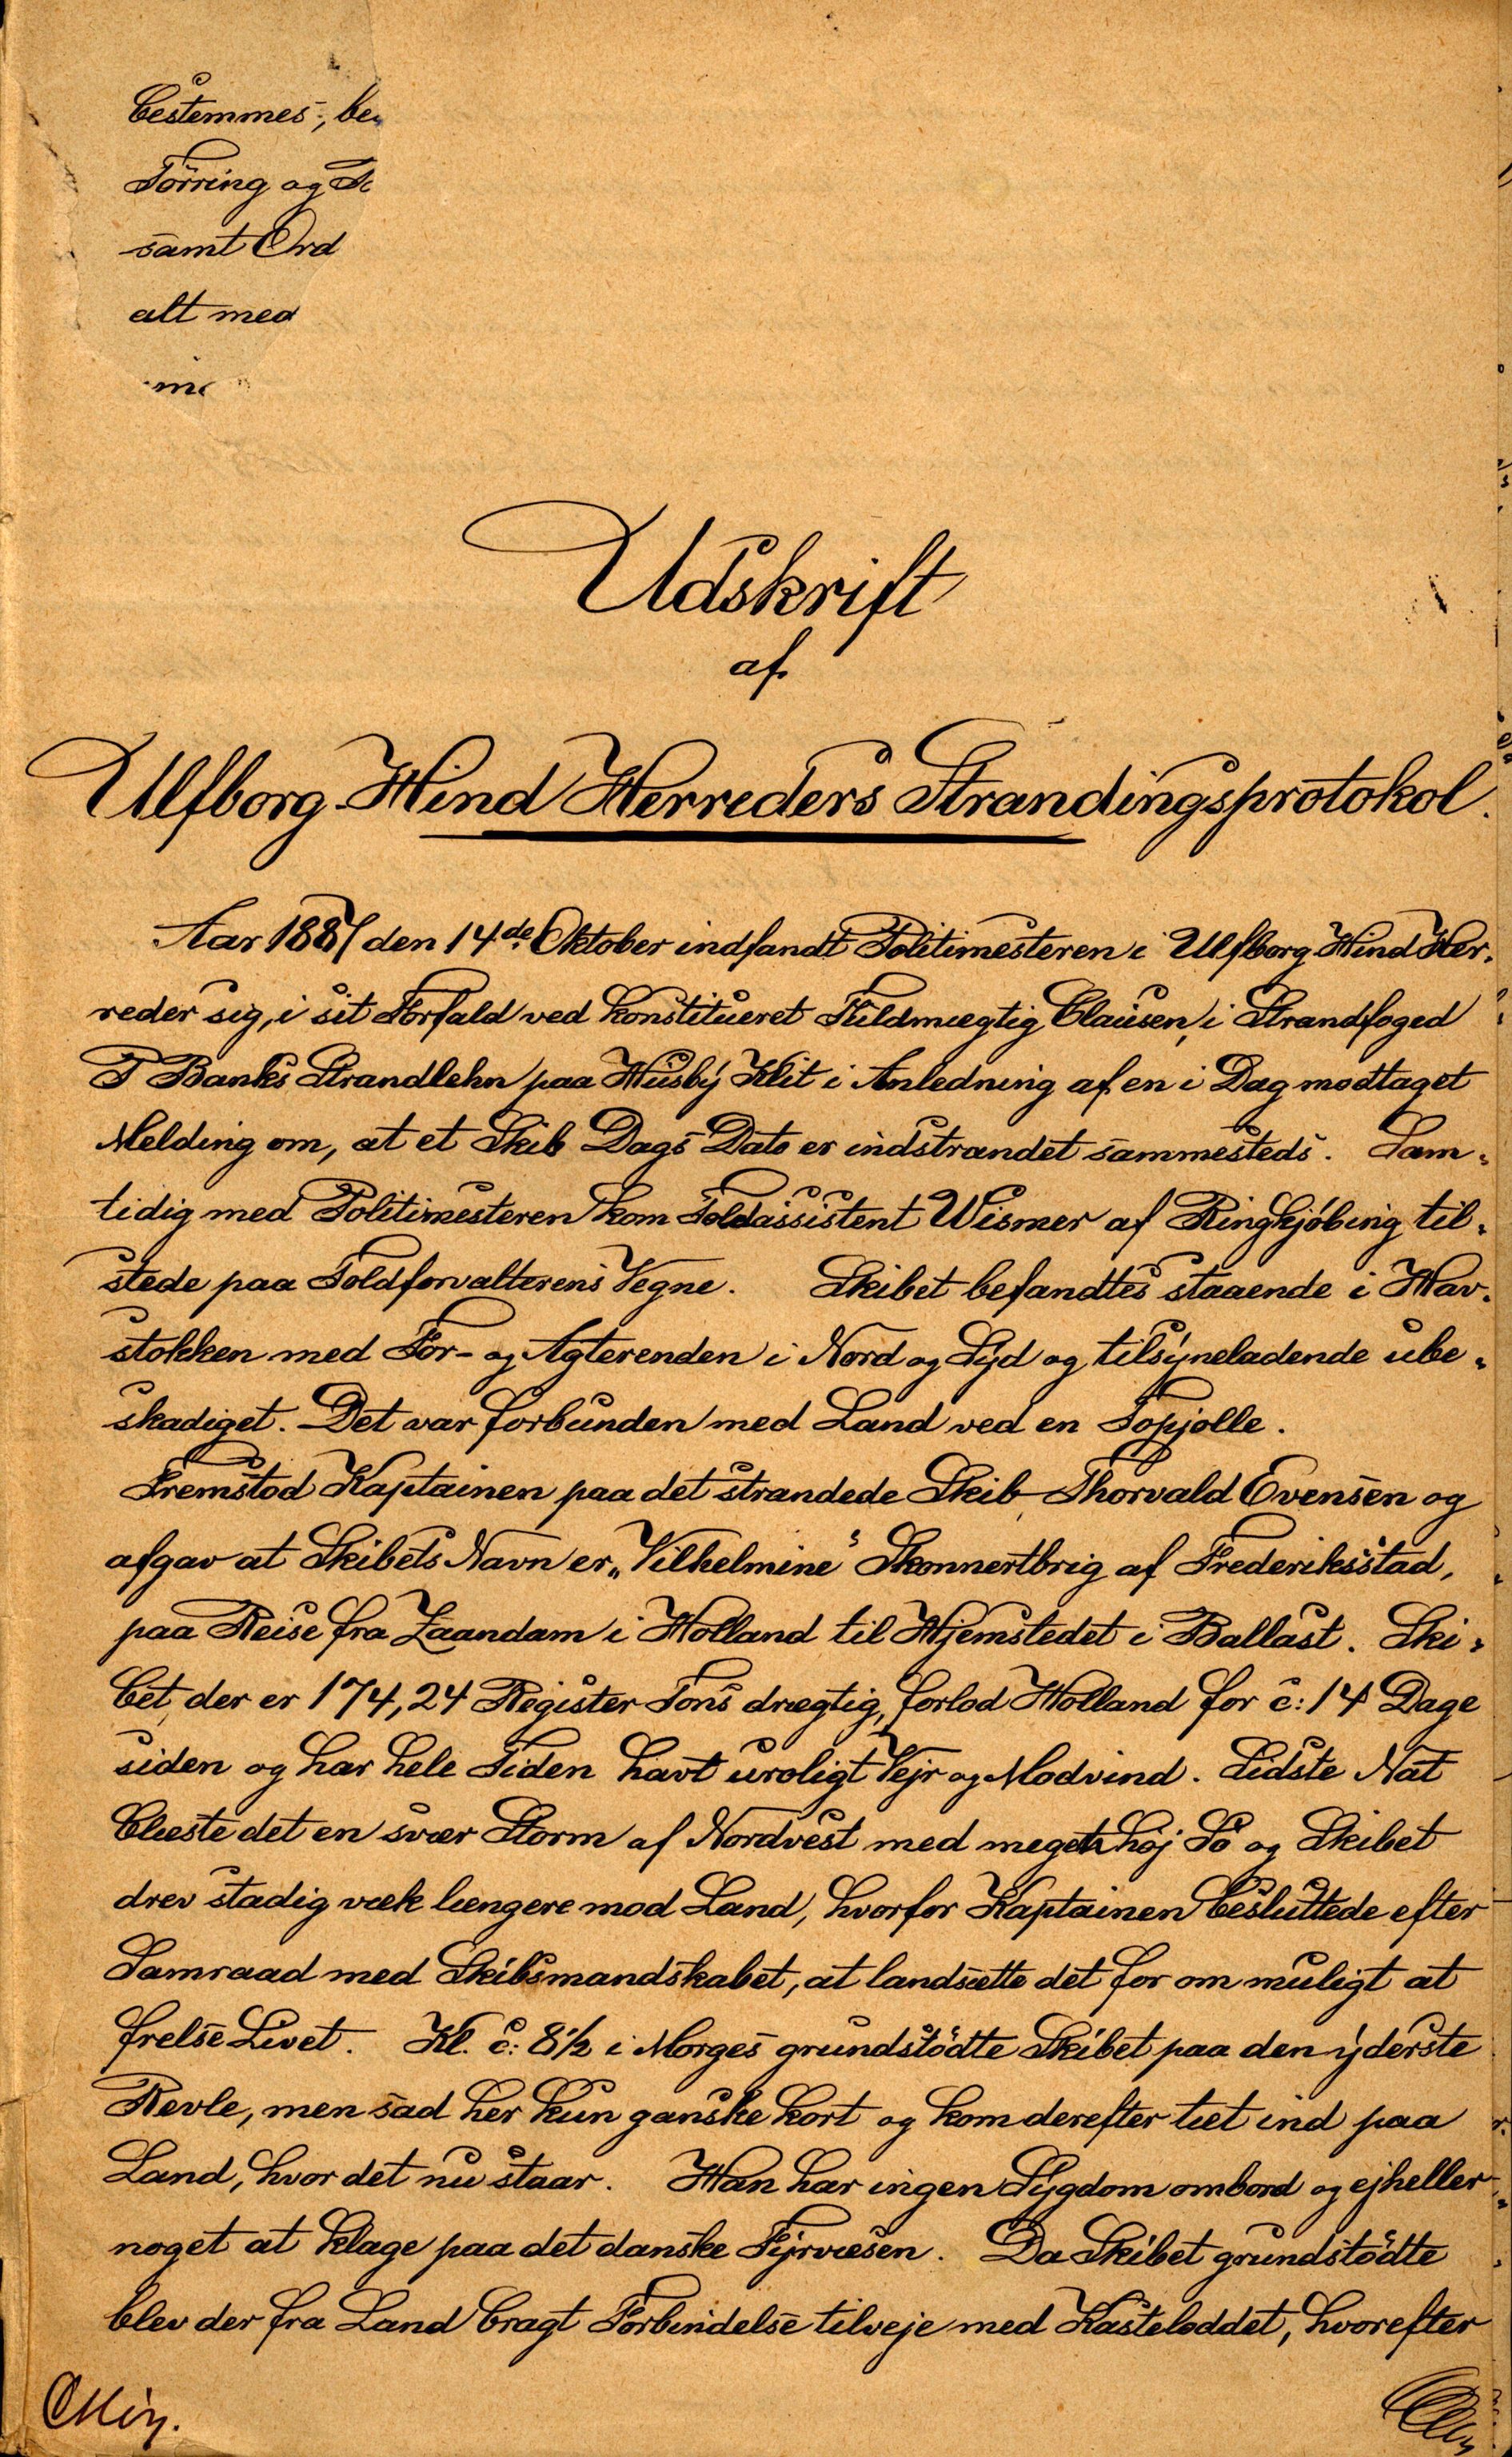 bestemmes, be
Törring og
samt Ord
alt med
Udskrift
af
Ulfborg Hind Herreders Strandingsprotokol.
Aar 1881 den 14de Oktober indfandt Politimesteren i Ulfborg Hind Her-
reder sig, i sit Forfald ved konstitueret Fuldmægtig Clausen, i Strandfoged
P Banks Strandlehn paa Husby Klit i Anledning af en i Dag modtaget
Melding om, at et Skib Dags Dato er indstrandet sammesteds. Sam-
tidig med Politimesteren kom Toldassistent Wismer af Ringkjöbing til-
stede paa Toldforvalterens Vegne. Skibet befandtes staaende i Hav-
stokken med For- og Agterenden i Nord og Syd og tilsyneladende ube-
skadiget. Det var forbunden med Land ved en Topjolle.
Fremstod Kaptainen paa det strandede Skib Thorvald Evensen og
afgav at Skibets Navn er „Vilhelmine“ Skonnertbrig af Frederiksstad,
paa Reise fra Zaandam i Holland til Hjemstedet i Ballast. Ski-
bet, der er 174,24 Register Tons drægtig, forlod Holland for c: 14 Dage
siden og har hele Tiden havt uroligt Vejr og Modvind. Sidste Nat
blæste det en svær Storm af Nordvest med meget høj Sö og Skibet
drev stadig væk længere mod Land, hvorfor Kaptainen besluttede efter
Samraad med Skibsmandskabet, at landsætte det for om muligt at
frelse Livet. Kl. c: 8½ i Morges grundstödte Skibet paa den yderste
Revle, men sad her kun ganske kort og kom derefter tæt ind paa
Land, hvor det nu staar. Han har ingen Sygdom ombord og ejheller
noget at klage paa det danske Fyrvæsen. Da Skibet grundstödte
blev der fra Land bragt Forbindelse tilveje med Kasteloddet, hvorefter